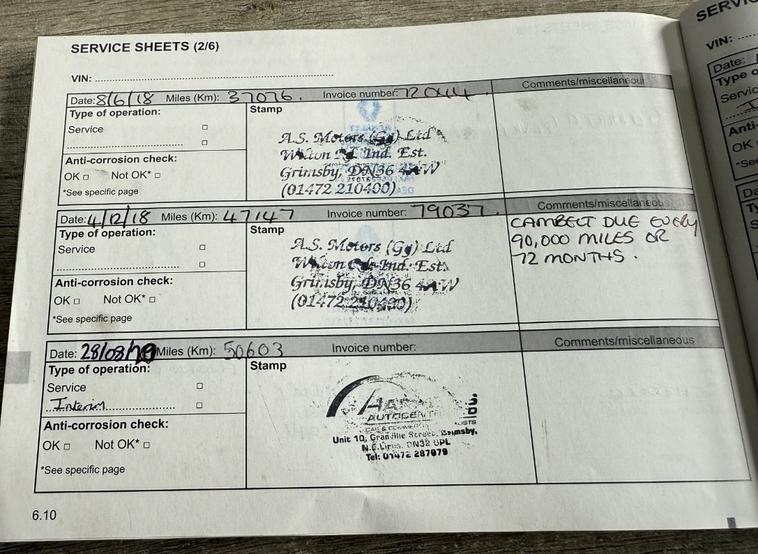 SERVICE SHEETS (2/6)
VIN:
Date: 8/6/18 Miles (Km): 37076. Invoice number: Comments/miscellaneous
Type of operation: Stamp
Service
Anti-corrosion check:
OK Not OK*
*See specific page
A.S. Motors (Gy) Ltd
Ind. Est.
Grimsby, DN36
(01472 210400)
Date: 4/12/18 Miles (Km): 47147 Invoice number: 79037. Comments/miscellaneous
Type of operation: Stamp
Service
Anti-corrosion check:
OK Not OK*
*See specific page
A.S. Motors (Gy) Ltd
Ind. Est.
Grimsby, DN36
(01472 210400)
CAMBELT DUE EVERY
90,000 MILES OR
72 MONTHS.
Date: 28/08/ Miles (Km): 50603 Invoice number: Comments/miscellaneous
Type of operation: Stamp
Service
Interim
Anti-corrosion check:
OK Not OK*
*See specific page
AUTOCENT
Unit 10, Grimsby,
N.E. DN32
Tel: 01472 287979
6.10
SERVIC
VIN: